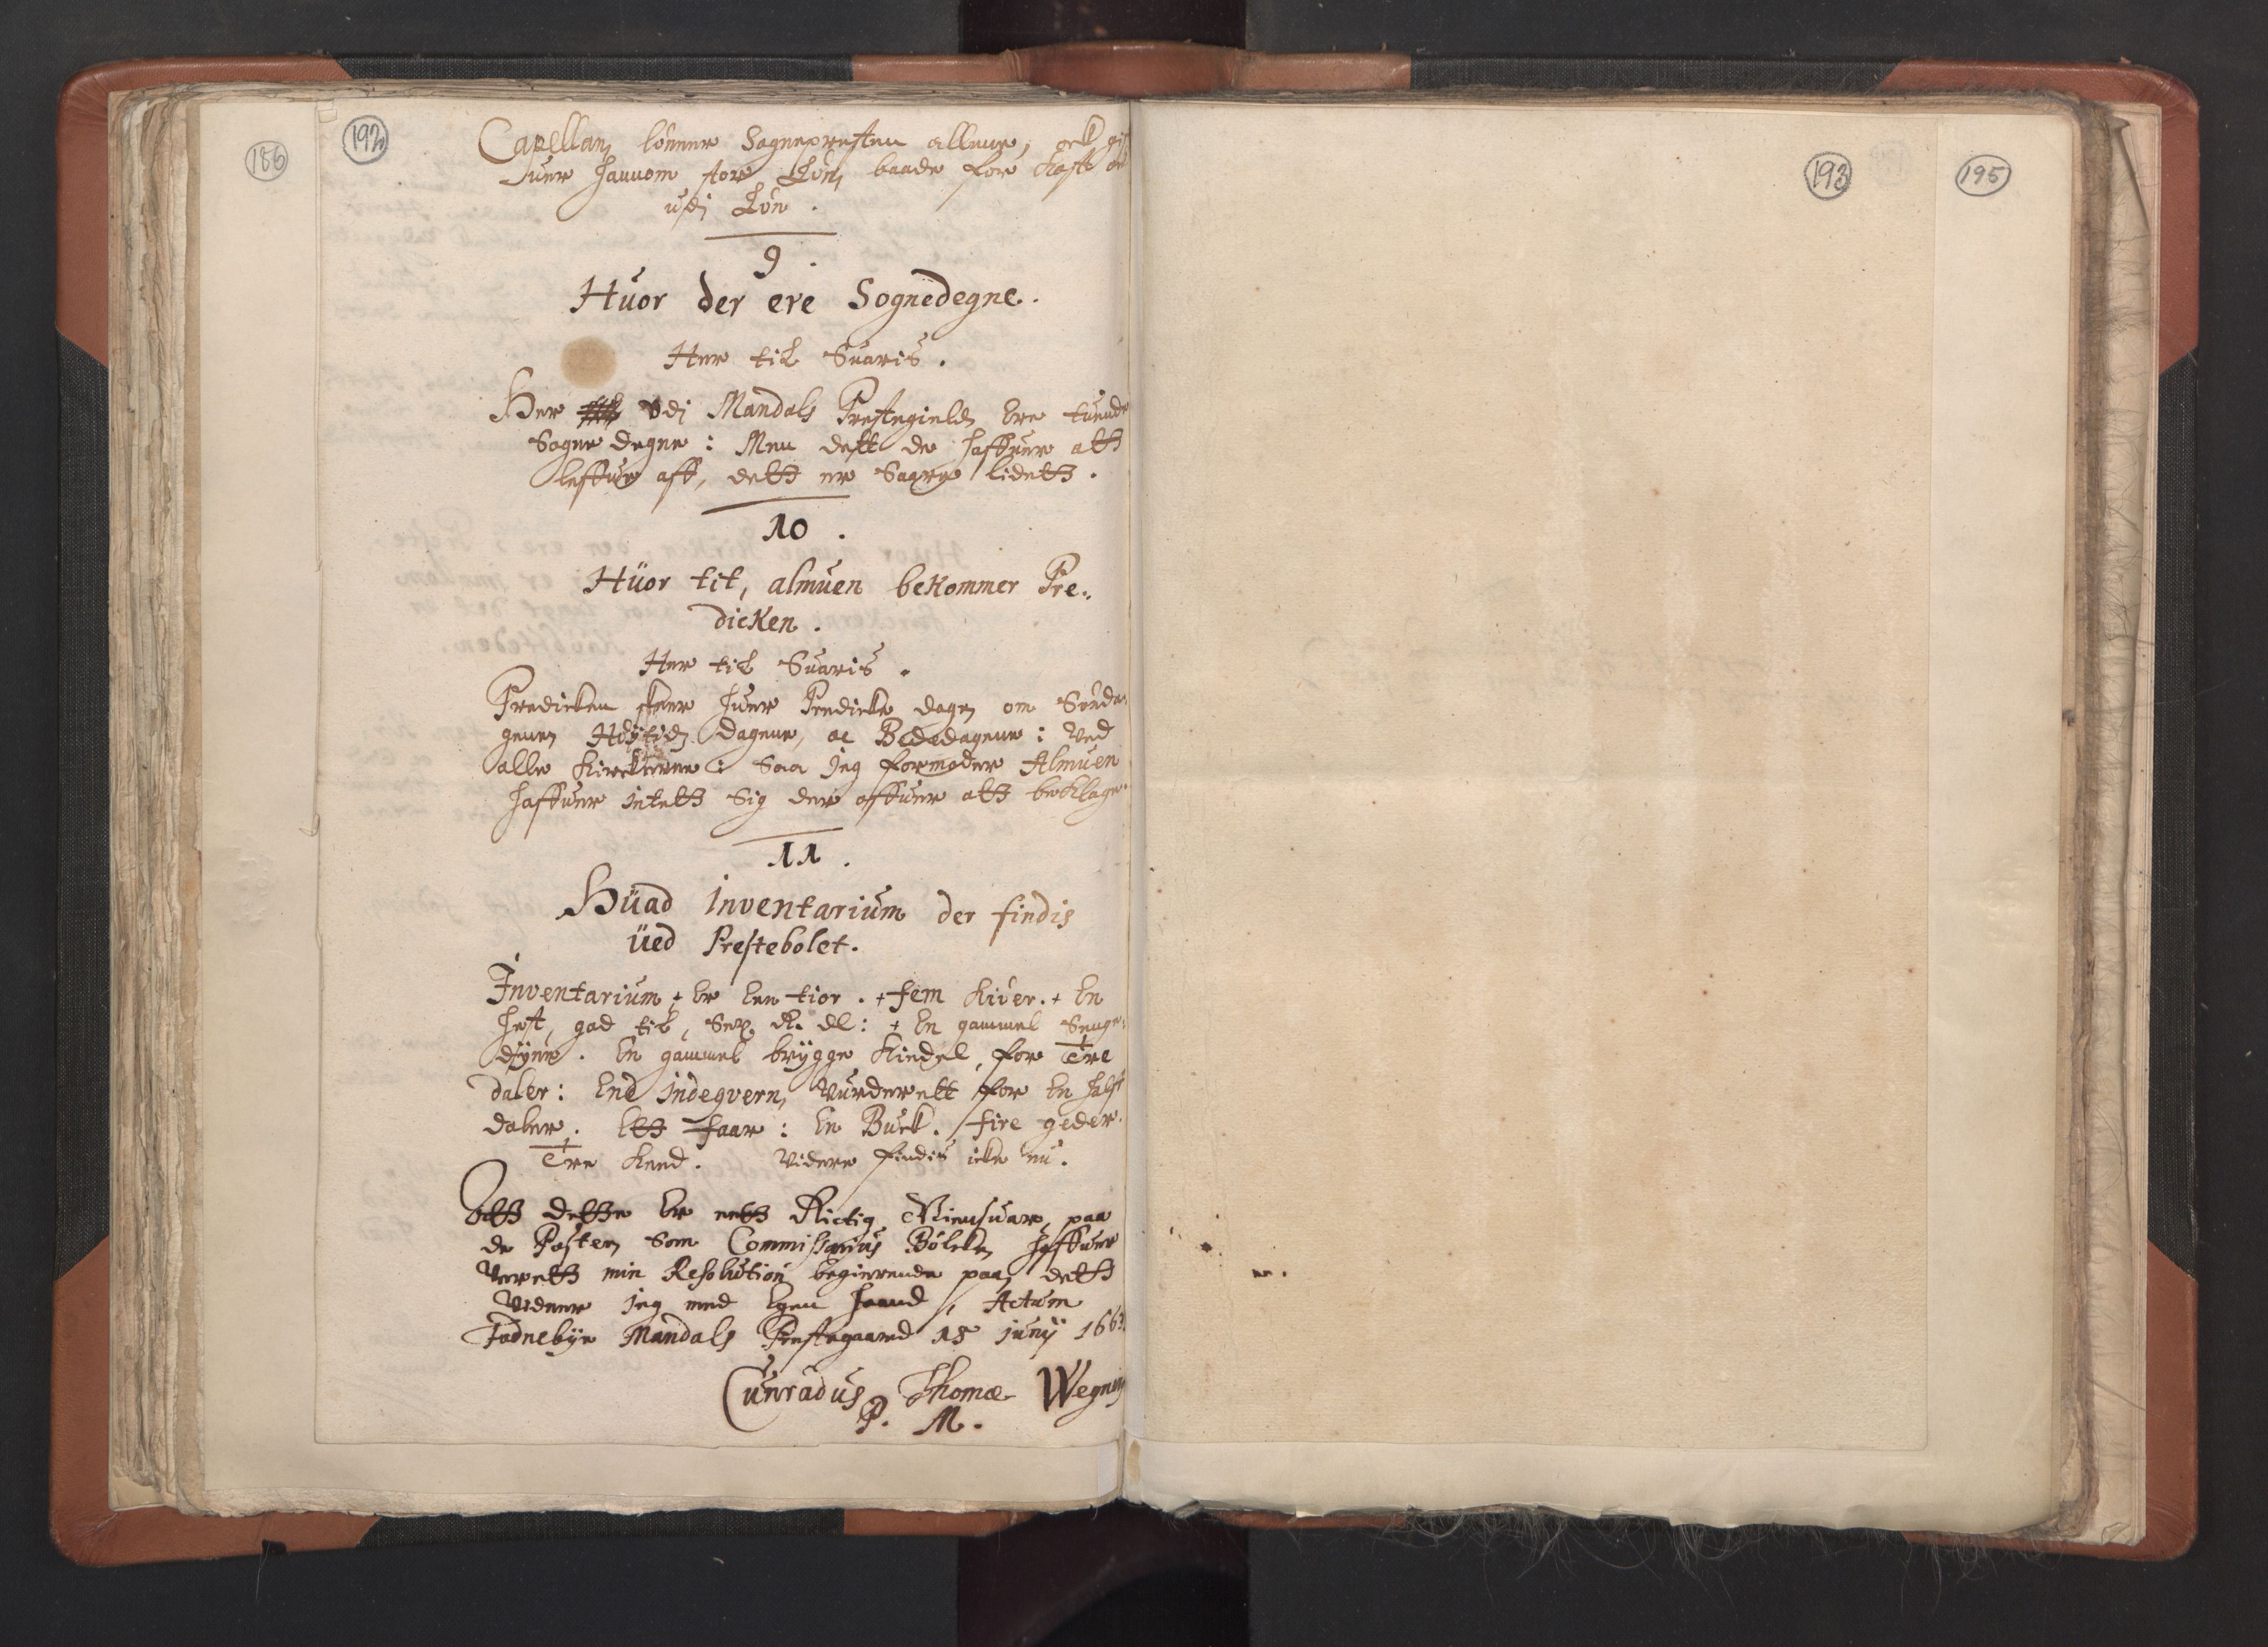 186
192
Capellan lønner Sognepresten allene, och gif
uer hannom stor Løn, baade for Kost oc
udj Løn.
9.
Huor der ere Sognedegne.
Her til Suaris.
Her Vdj Mandals Prestegield, Ere tuende
Sogne degne: Men dett de haffuer att
leffue aff, dett er Sagre lidett.
10.
Hüor tit, almuen beKommer Pre..
dicKen.
Her til Suaris.
Predicken skeer huer Predicke dagen om Sønda..
genen Høÿtids Dagene, oc Bededagene: Ved
alle Kirckerne: Saa Jeg formoder Almuen
haffuer intett Sig der offuer att beklage.
11.
Hüad Inventarium der findis
üed Prestebolet.
Inventarium + Er Een tior. + fem Kiver. + En
hest, god til, Sex R. dl: + En gammel Senge..
dÿne. En gammel brÿgge Kiedel, for Tre
daler: End indeqvern, Vurderett for En halff
daler. Ett faar: En Buck. fire geder.
Tre Keed. Videre findis icke nu.
Att dette Er rett Rictig Giensuar, paa
de Poster Som Commissarius Bølcke haffuer
Verett min Resolution begierende paa, dett
Vidner Jeg med Egen haand, Actum
Fodnebÿe Mandals Prestegaard 18 junÿ 1663.
Cunradus Thomæ Wegner
P. M.
193
195